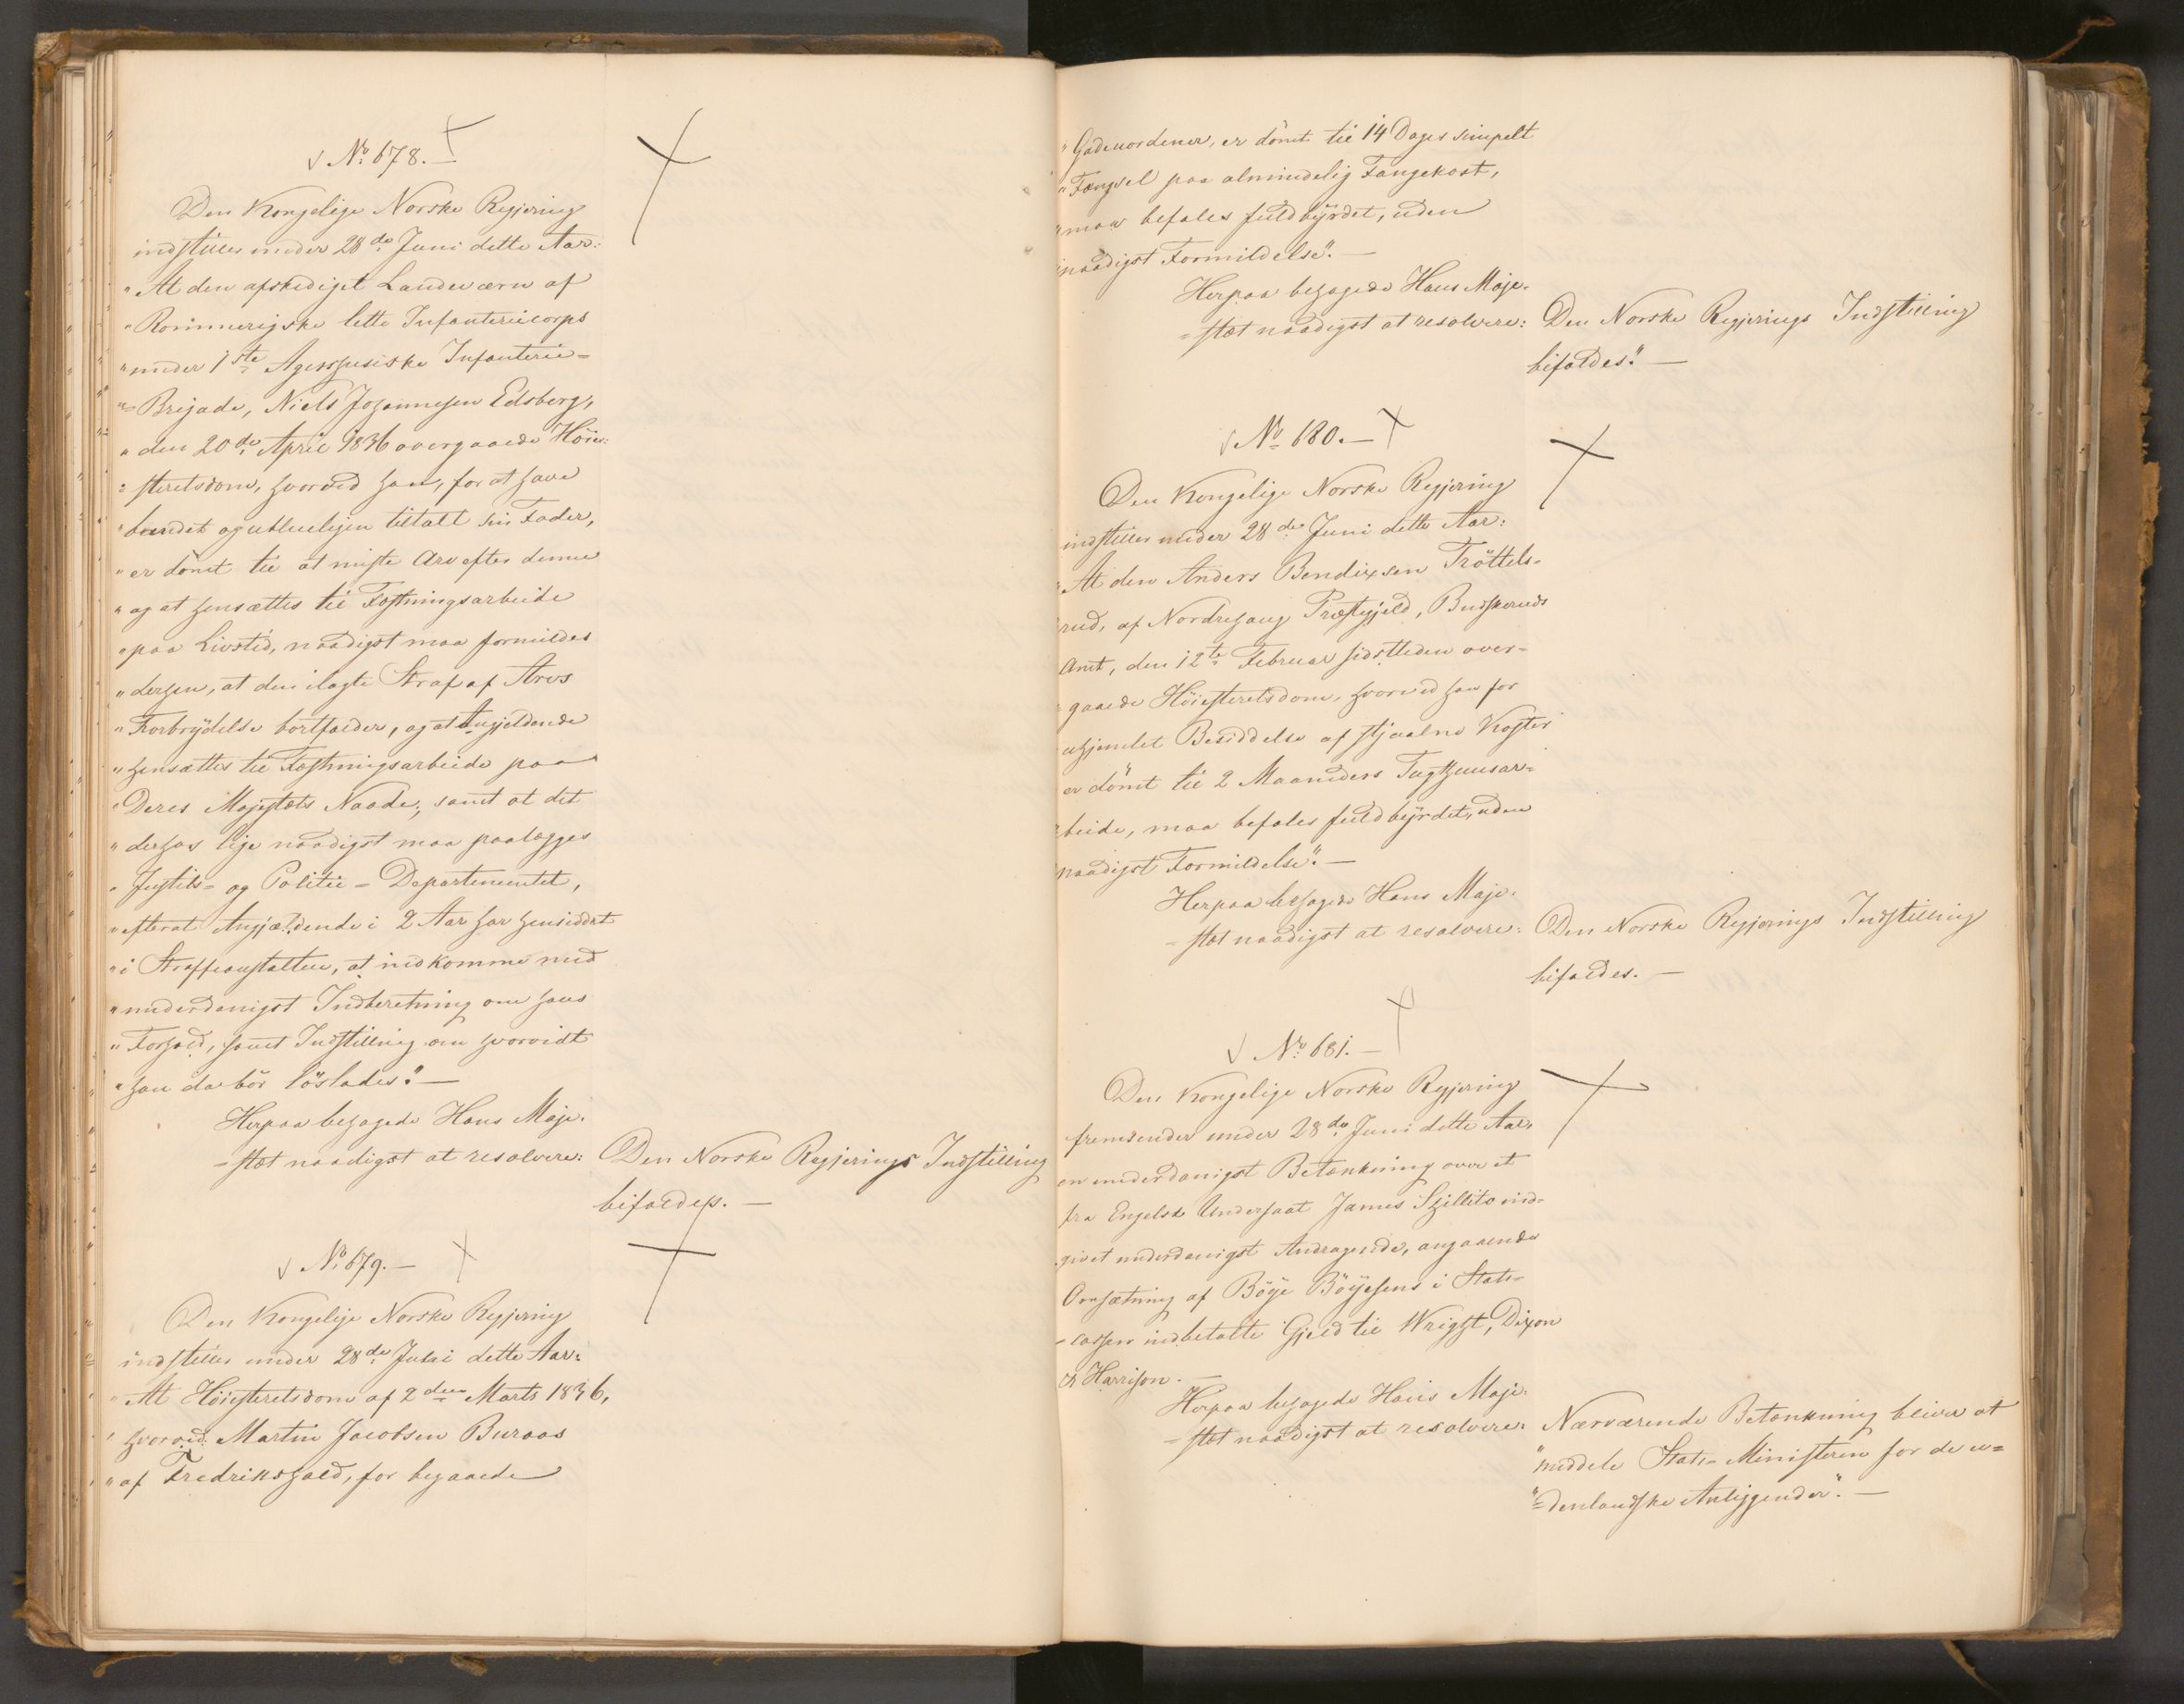 √ No 678. —
Den Kongelige Norske Regjering
indstiller under 28de Juni dette Aar:
"At den afskediget Landeværn af
"Romerigske lette Infanteriecorps
"under 1ste Agershusiske Infanterie=
"=Brigade, Niels Johannesen Edsberg,
"den 20de April 1836 overgaaede Höie=
"=steretsdom, hvorved han, for at have
"bandet og utilueligen tiltalt sin Fader,
"er dömt til at miste Arv efter denne
"og at hensættes til Fæstningsarbeide
"paa Livstid, naadigst maa formildes
"derhen, at den ilagte Straf af Arvs
"Forbrydelse bortfalder, og at Angjeldende
"hensættes til Fæstningsarbeide paa
"Deres Majestæts Naade; samt at det
"derhos lige naadigst maa paalægges
"Justits= og Politie=Departementet,
"efterat Angjældende i 2 Aar har hensiddet
"i Straffeanstalten, at indkomme med
"underdanigst Indberetning om hans
"Forhold, samt Indstilling om hvorvidt
"han da bör löslades." —
Herpaa behagede Hans Maje=
=stæt naadigst at resolvere: Den Norske Regjerings Indstilling
bifaldes. —
√ No 679. —
Den Kongelige Norske Regjering
indstiller under 28de Juni dette Aar:
"At Höiesteretsdom af 2den Marts 1836,
"hvorved Martin Jacobsen Buraas
"af Fredrikshald, for begaaede
"Gadeuordener, er dömt til 14 Dages simpelt
"Fængsel paa almindelig Fangekost,
"maa befales fuldbyrdet, uden
"naadigst Formildelse." —
Herpaa behagede Hans Maje=
=stæt naadigst at resolvere: Den Norske Regjerings Indstilling
bifaldes." —
√ No 680. —
Den Kongelige Norske Regjering
indstiller under 28de Juni dette Aar:
"At den Anders Bendixsen Tröttels=
"rud, af Nordrehaug Præstegjeld, Buskeruds
Amt, den 12te Februar sidstleden over=
"gaaede Höiesteretsdom, hvorved han for
uhjemlet Besiddelse af stjaalne Koster
er dömt til 2 Maaneders Tugthuusar=
"beide, maa befales fuldbyrdet, uden
naadigst Formildelse." —
Herpaa behagede Hans Maje=
=stæt naadigst at resolvere: Den Norske Regjerings Indstilling
bifaldes. —
√ No 681. —
Den Kongelige Norske Regjering
fremsender under 28de Juni dette Aar,
en underdanigst Betænkning over et
fra Engelsk Undersaat James Shillito ind=
givet underdanigst Andragende, angaaende
Omsætning af Böye Böyesens i Stats=
=cassen indbetalte Gjeld til Wright, Dixon
& Harrison. —
Herpaa behagede Hans Maje=
=stæt naadigst at resolvere: Nærværende Betænkning bliver at
"meddele Stats=Ministeren for de u=
"=denlandske Anliggender." —